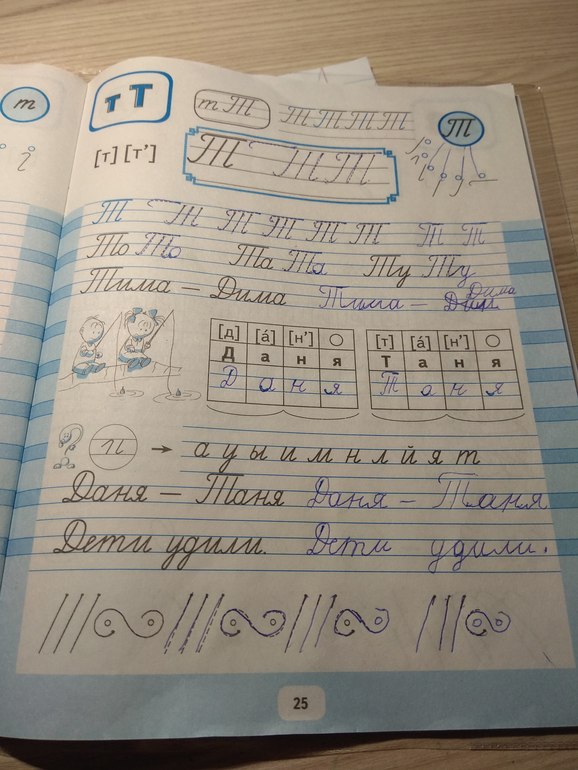 т
т Т
т Т Т Т Т Т
Т
[т] [т’]
Т Т Т
Т Т Т Т Т Т Т Т
То То Та Та Ту Ту
Тима — Дима Тима — Дима
[д] [а́] [н’] [т] [а́] [н’]
Д а н я Т а н я
Д а н я Т а н я
а у ы и м н л й я т
Даня — Таня Даня — Таня
Дети удили. Дети удили.
25